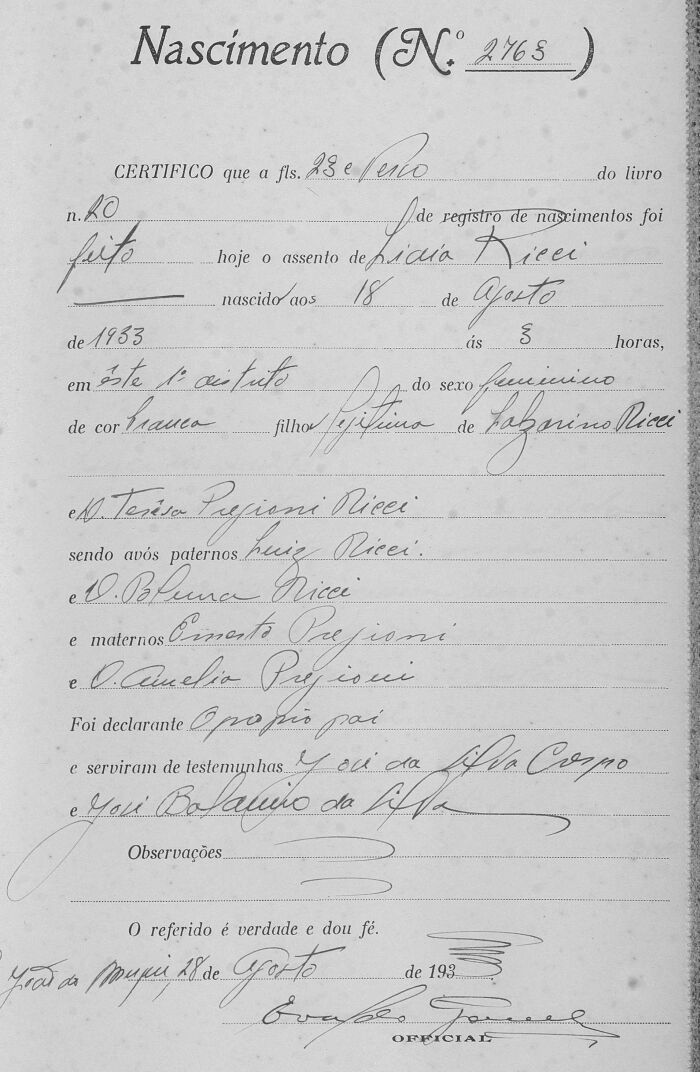 Nascimento (N.º 2763)
CERTIFICO que a fls. 23 e Verso do livro
n. 20 de registro de nascimentos foi
feito hoje o assento de Lidia Ricci
nascido aos 18 de Agosto
de 1933 ás 3 horas,
em êste 1º distrito do sexo feminino
de cor branca filha legitima de Ricci
e D. Terêsa Pregioni Ricci
sendo avós paternos Luiz Ricci.
e D. Ricci
e maternos Ernesto Pregioni
e D. Amelia Pregioni
Foi declarante O proprio pai
e serviram de testemunhas José da Silva Crespo
e José da Silva
Observações
O referido é verdade e dou fé.
28 de Agosto de 1933
OFFICIAL